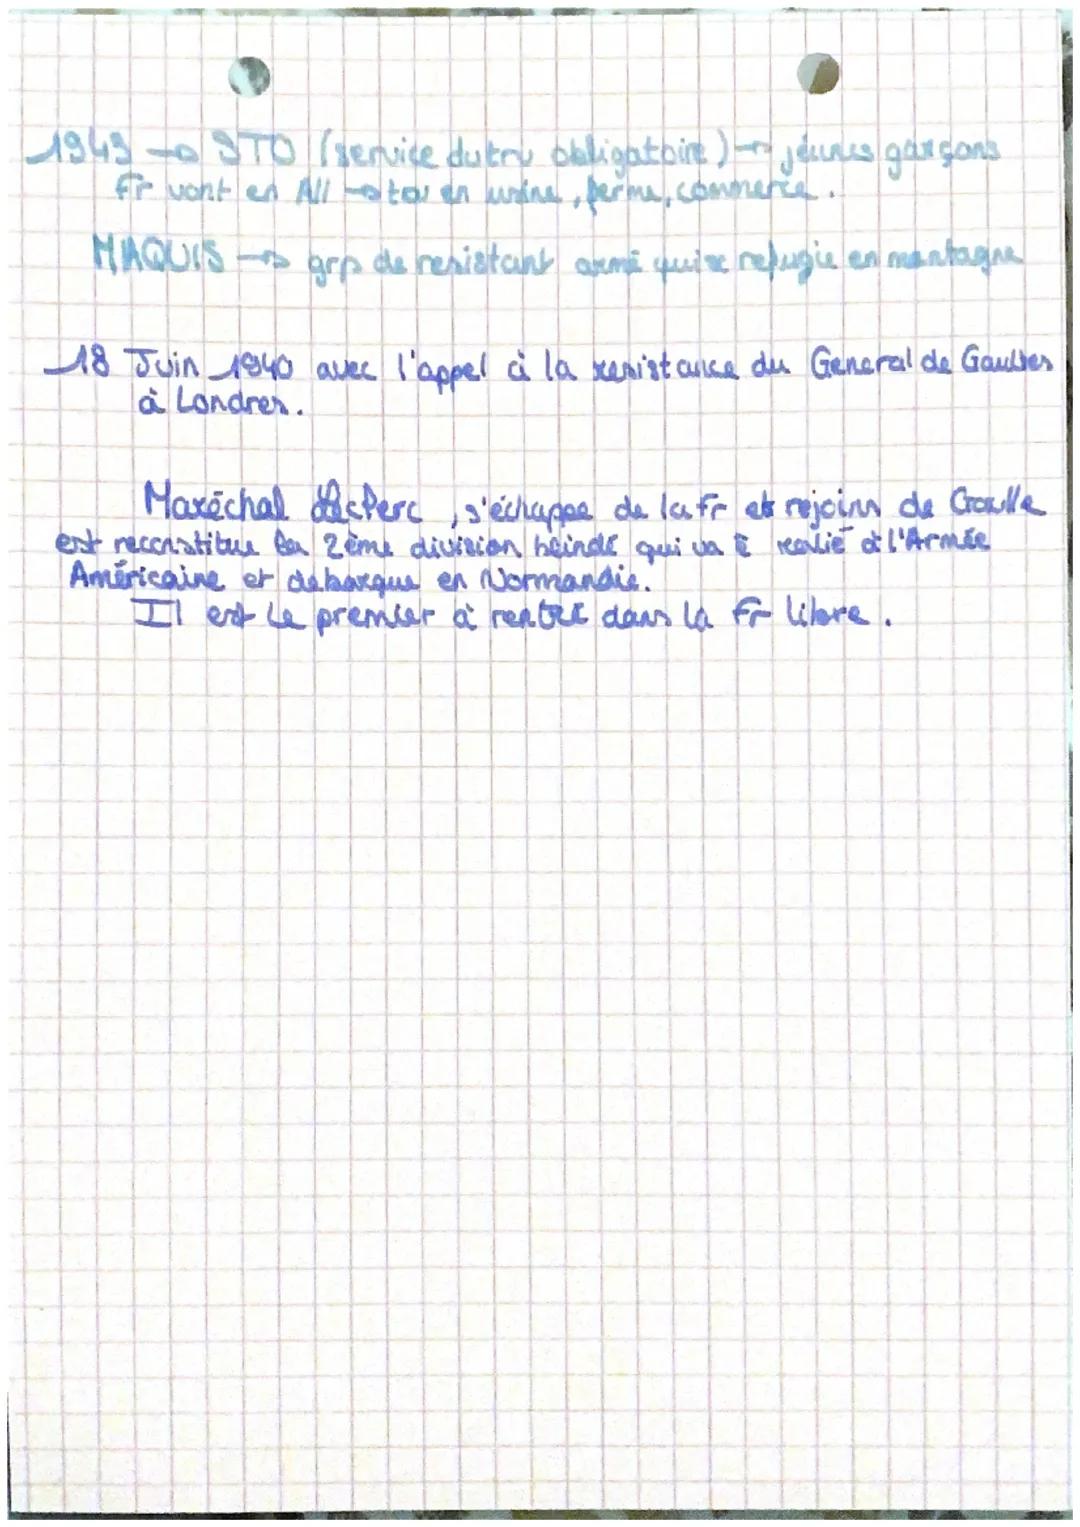 1943 → STO (service du trv obligatoire) → jeunes garçons
Fr vont en All → en usine, ferme, commerce.
MAQUIS → grp de resistant armé qui se refugie en montagne
18 Juin 1940 avec l'appel à la resistance du General de Gaulles
à Londres.
Maréchal LecPerc, s'échappe de la fr et rejoins de Graulle
est reconstitue la 2ème division blindé qui va ê realié à l'Armée
Américaine et debarque en Normandie.
Il est le premier à rentré dans la Fr libre.